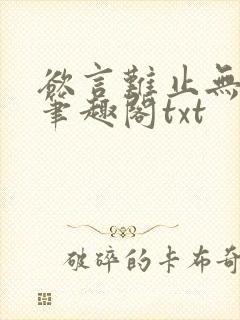 欲言難止無
筆趣閣txt
破碎的卡布奇